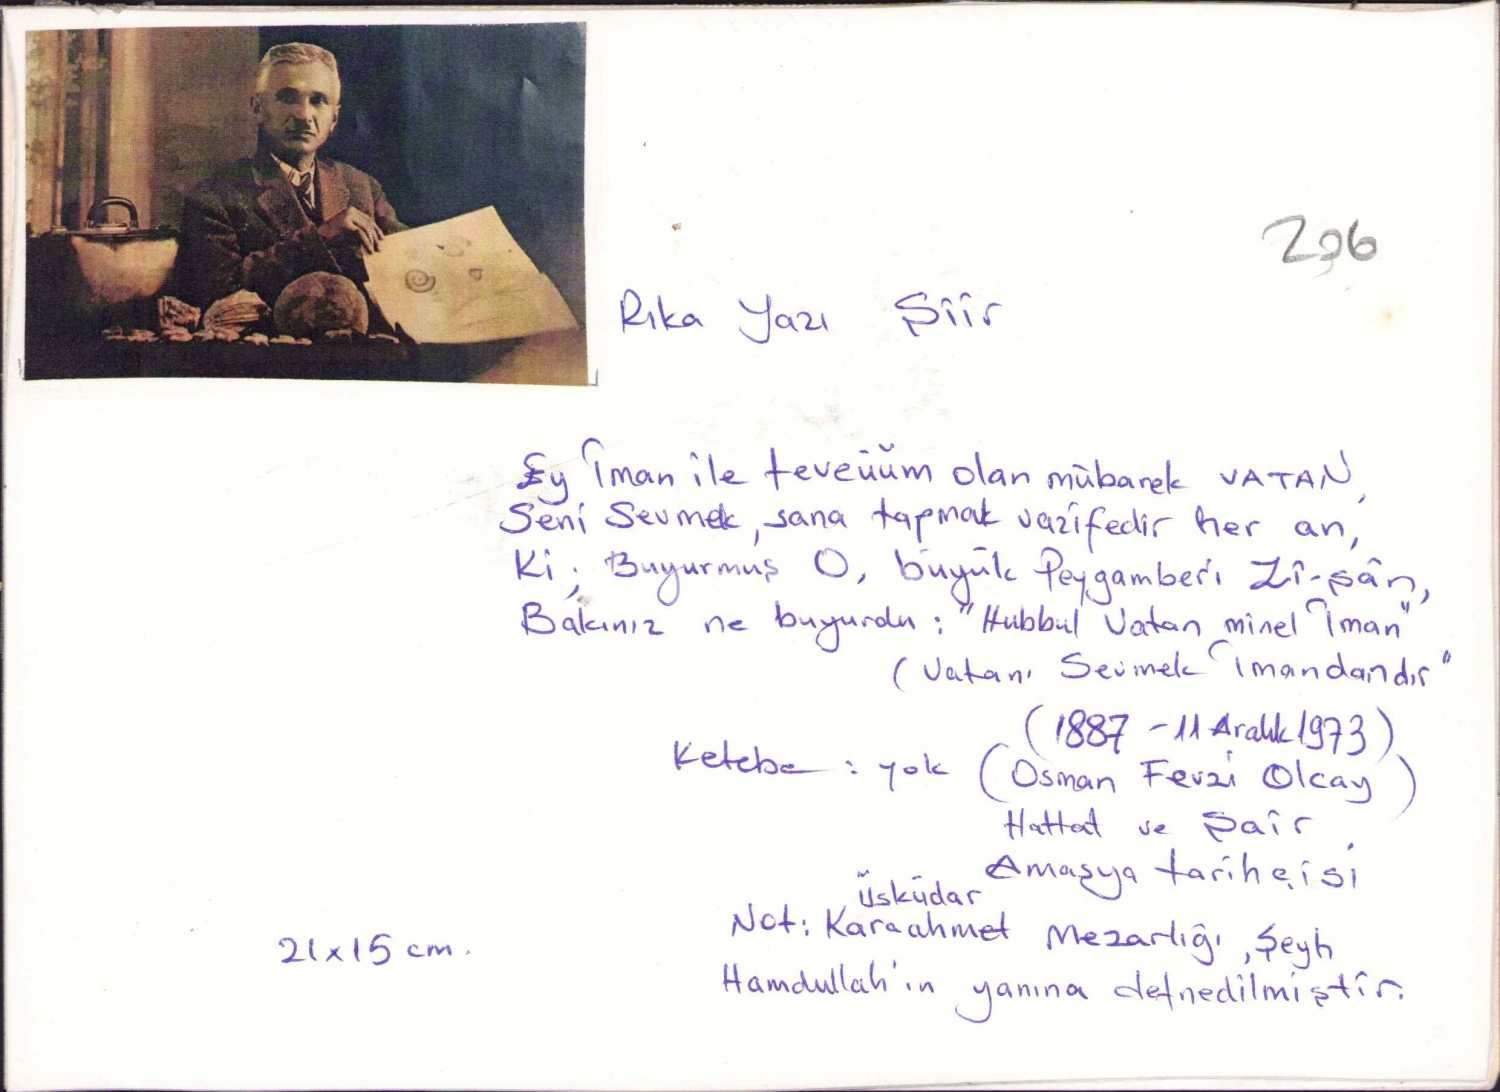 206
Rıka Yazı Şiir
Ey İman ile teveüüm olan mübarek VATAN,
Seni Sevmek, sana tapmak vazifedir her an,
Ki; Buyurmuş O, büyük Peygamberi Zî-şân,
Bakınız ne buyurdu: "Hubbul Vatan minel İman"
(Vatanı Sevmek İmandandır"
(1887 - 11 Aralık 1973)
Ketebe : yok (Osman Fevzi Olcay)
Hattat ve Şair,
Amasya tarihçisi
Üsküdar
Not: Karaahmet Mezarlığı, Şeyh
21x15 cm.
Hamdullah'ın yanına defnedilmiştir.